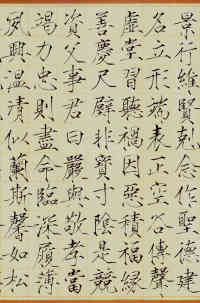 景行維賢克念作聖德建
名立形端表正空谷傳聲
虛堂習聽禍因惡積福緣
善慶尺璧非寶寸陰是競
資父事君曰嚴與敬孝當
竭力忠則盡命臨深履薄
夙興溫清似蘭斯馨如松